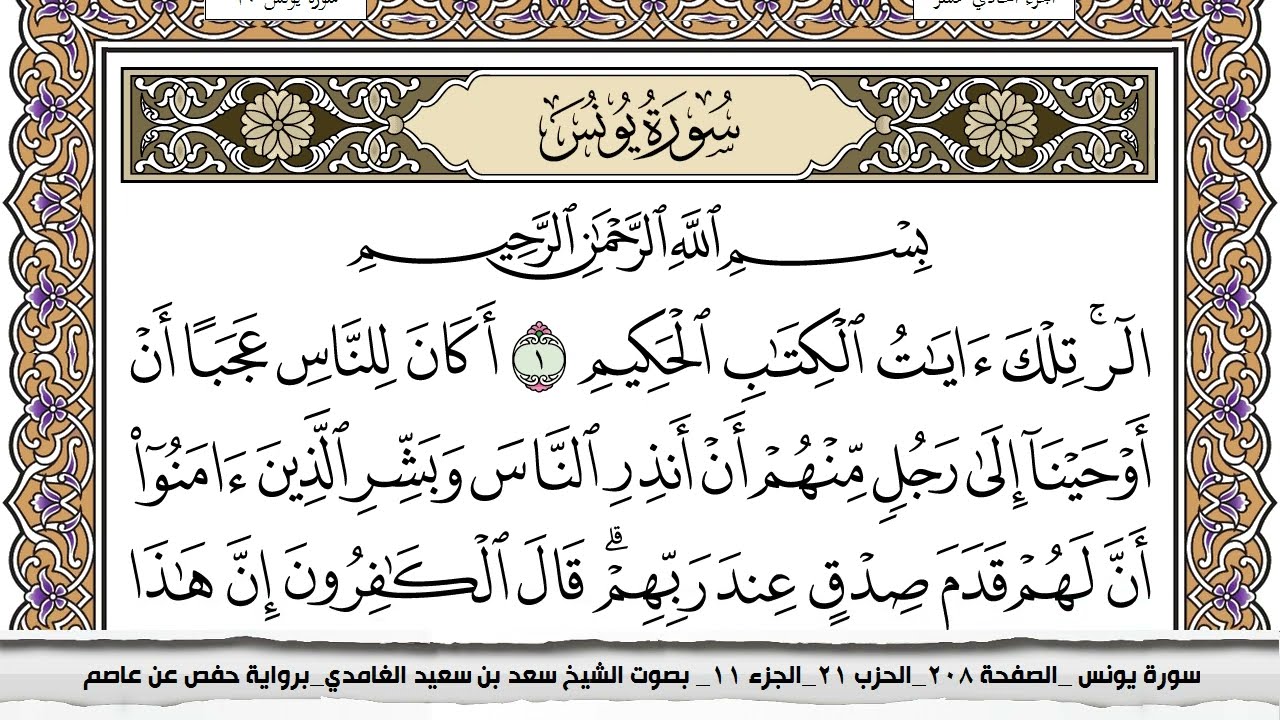 سورة يونس ١٠
الجزء الحادي عشر
سُورَةُ يُونُسَ
بِسْمِ ٱللَّهِ ٱلرَّحْمَٰنِ ٱلرَّحِيمِ
الٓرۚ تِلْكَ ءَايَٰتُ ٱلْكِتَٰبِ ٱلْحَكِيمِ ١ أَكَانَ لِلنَّاسِ عَجَبًا أَنْ
أَوْحَيْنَآ إِلَىٰ رَجُلٍ مِّنْهُمْ أَنْ أَنذِرِ ٱلنَّاسَ وَبَشِّرِ ٱلَّذِينَ ءَامَنُوٓا۟
أَنَّ لَهُمْ قَدَمَ صِدْقٍ عِندَ رَبِّهِمْۗ قَالَ ٱلْكَٰفِرُونَ إِنَّ هَٰذَا
سورة يونس _الصفحة ٢٠٨_الحزب ٢١_الجزء ١١_ بصوت الشيخ سعد بن سعيد الغامدي_برواية حفص عن عاصم